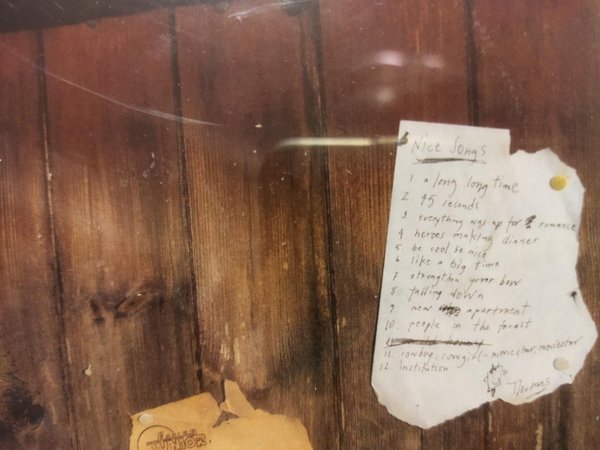 Nice Songs
1. a long long time
2. 45 seconds
3 everything was up for romance
4. heroes making dinner
5. be cool be nice
6. like a big time
7 strengthen your bow
8 falling down
9. new apartment
10. people in the forest
11. cowboy, cowgirl -
12 Institution
Thomas
JUNIOR